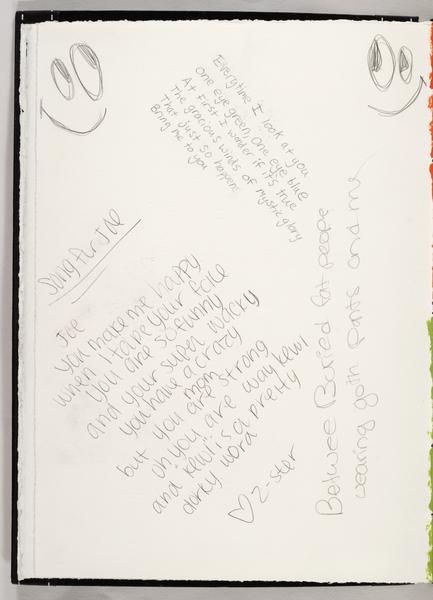 Everytime I look at you
One eye green, One eye blue
At first I wonder if it's true
The gracious winds of mystic glory
That just so happens
Bring me to you
Song for Joe
Joe
you make me happy
when I take your face
you are so funny
and your super wacky
you have a crazy
mom
but you are strong
oh you are way kewl
and "kewl" is a pretty
dorky word
♡ Z-ster
Betwee Buried fat people
wearing goth pants and me